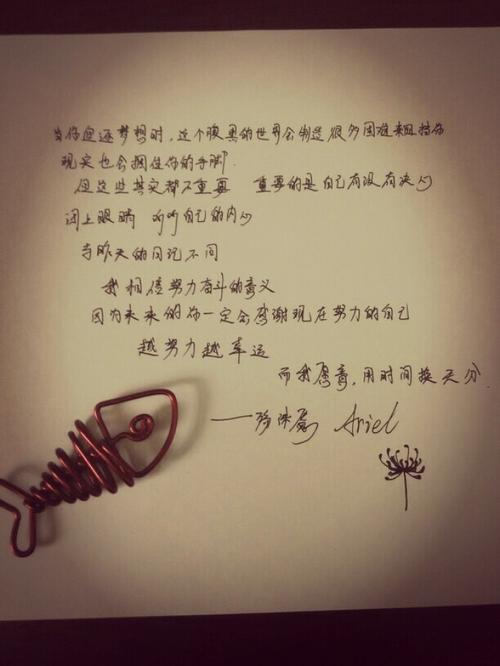 当你追逐梦想时，这个腹黑的世界会制造很多困难来阻挡你
现实也会捆住你的手脚.
但这些其实都不重要 重要的是自己有没有决心
闭上眼睛 听听自己的内心
与昨天的日记不同
我相信努力奋斗的意义
因为未来的你一定会感谢现在努力的自己
越努力越幸运
而我愿意，用时间换天分.
—— Ariel